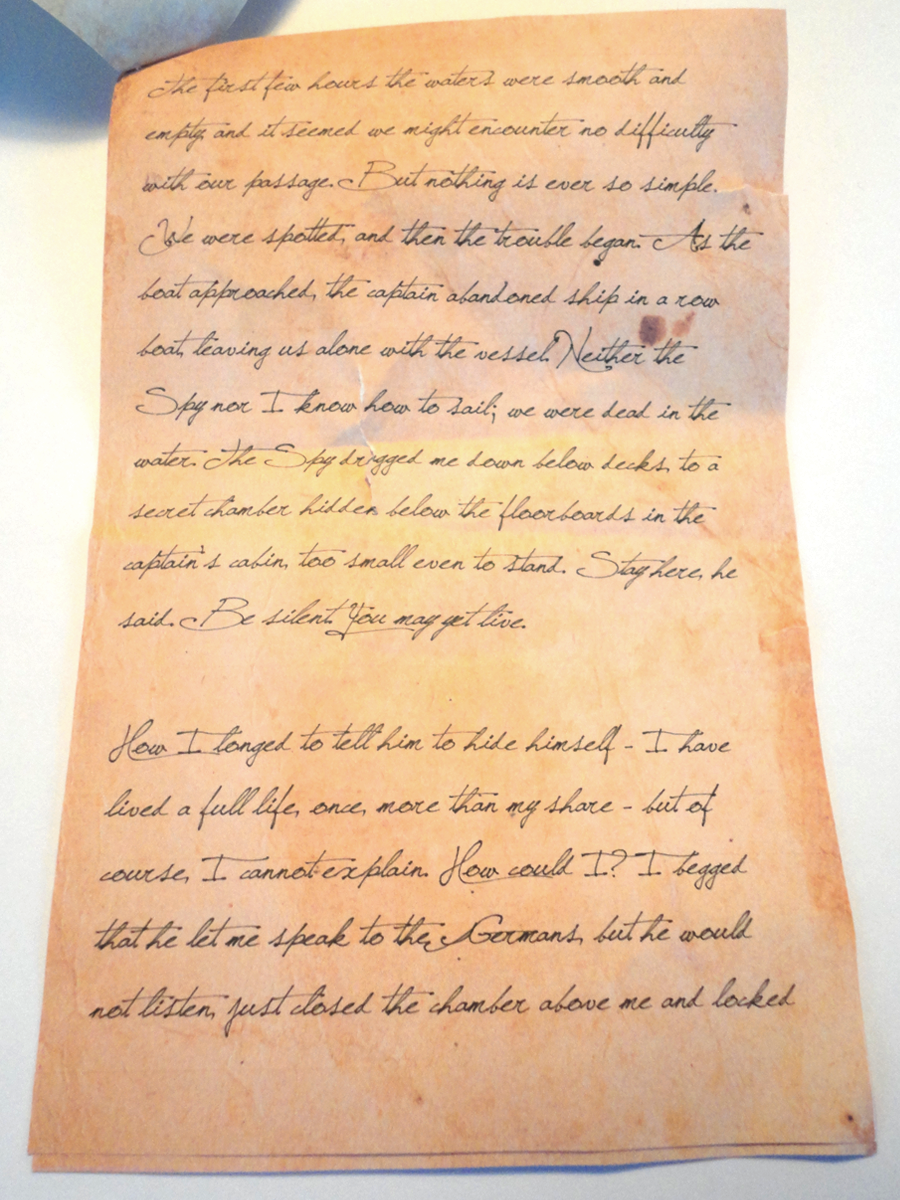 The first few hours the waters were smooth and
empty, and it seemed we might encounter no difficulty
with our passage. But nothing is ever so simple.
We were spotted, and then the trouble began. As the
boat approached, the captain abandoned ship in a row
boat, leaving us alone with the vessel. Neither the
Spy nor I know how to sail; we were dead in the
water. The Spy dragged me down below decks, to a
secret chamber hidden below the floorboards in the
captain's cabin, too small even to stand. Stay here, he
said. Be silent. You may yet live.
How I longed to tell him to hide himself - I have
lived a full life, once, more than my share - but of
course, I cannot explain. How could I? I begged
that he let me speak to the Germans, but he would
not listen, just closed the chamber above me and locked